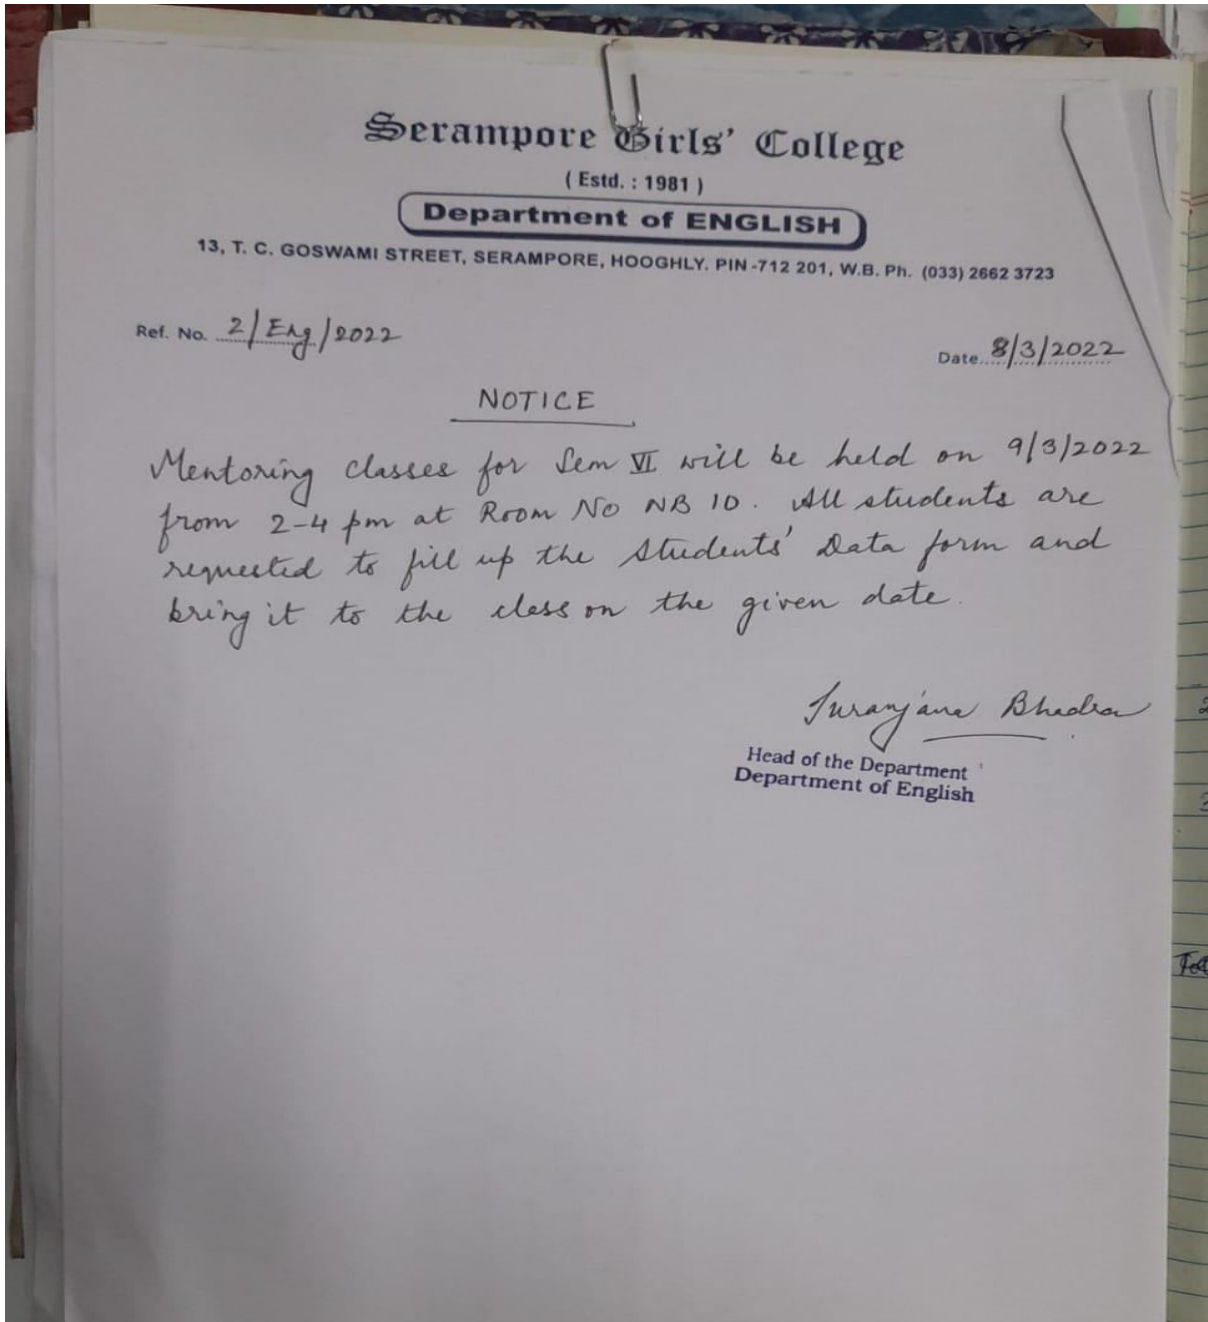 Serampore Girls' College
( Estd. : 1981 )
Department of ENGLISH
13, T. C. GOSWAMI STREET, SERAMPORE, HOOGHLY. PIN -712 201, W.B. Ph. (033) 2662 3723
Ref. No. 2/Eng/2022
Date 8/3/2022
NOTICE
Mentoring classes for Sem VI will be held on 9/3/2022
from 2-4 pm at Room No NB 10. All students are
requested to fill up the Students' Data form and
bring it to the class on the given date.
Suranjana Bhadra
Head of the Department
Department of English